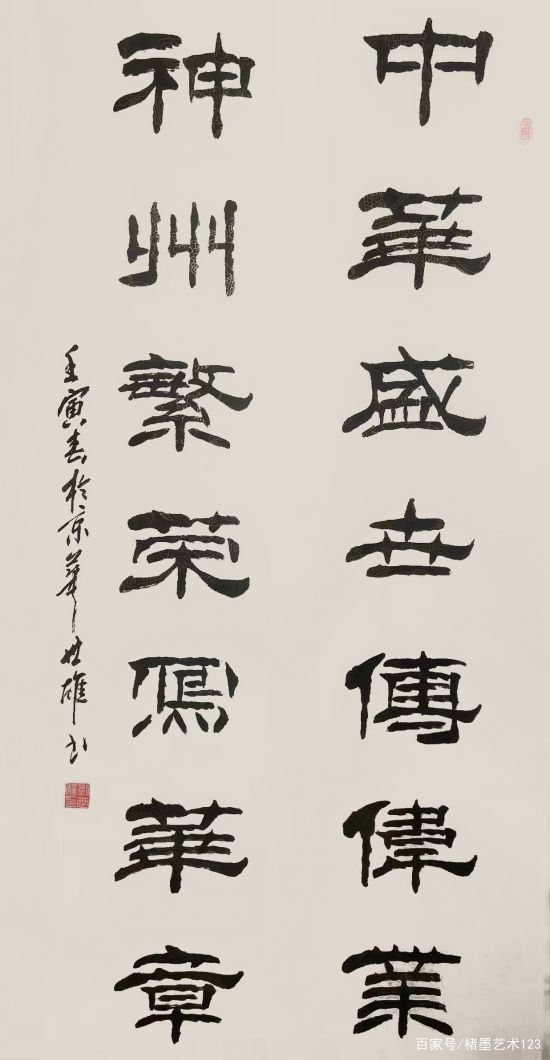 中華盛世傳偉業
神州繁荣寫華章
壬寅春於京華世雄书
百家号/楮墨艺术123